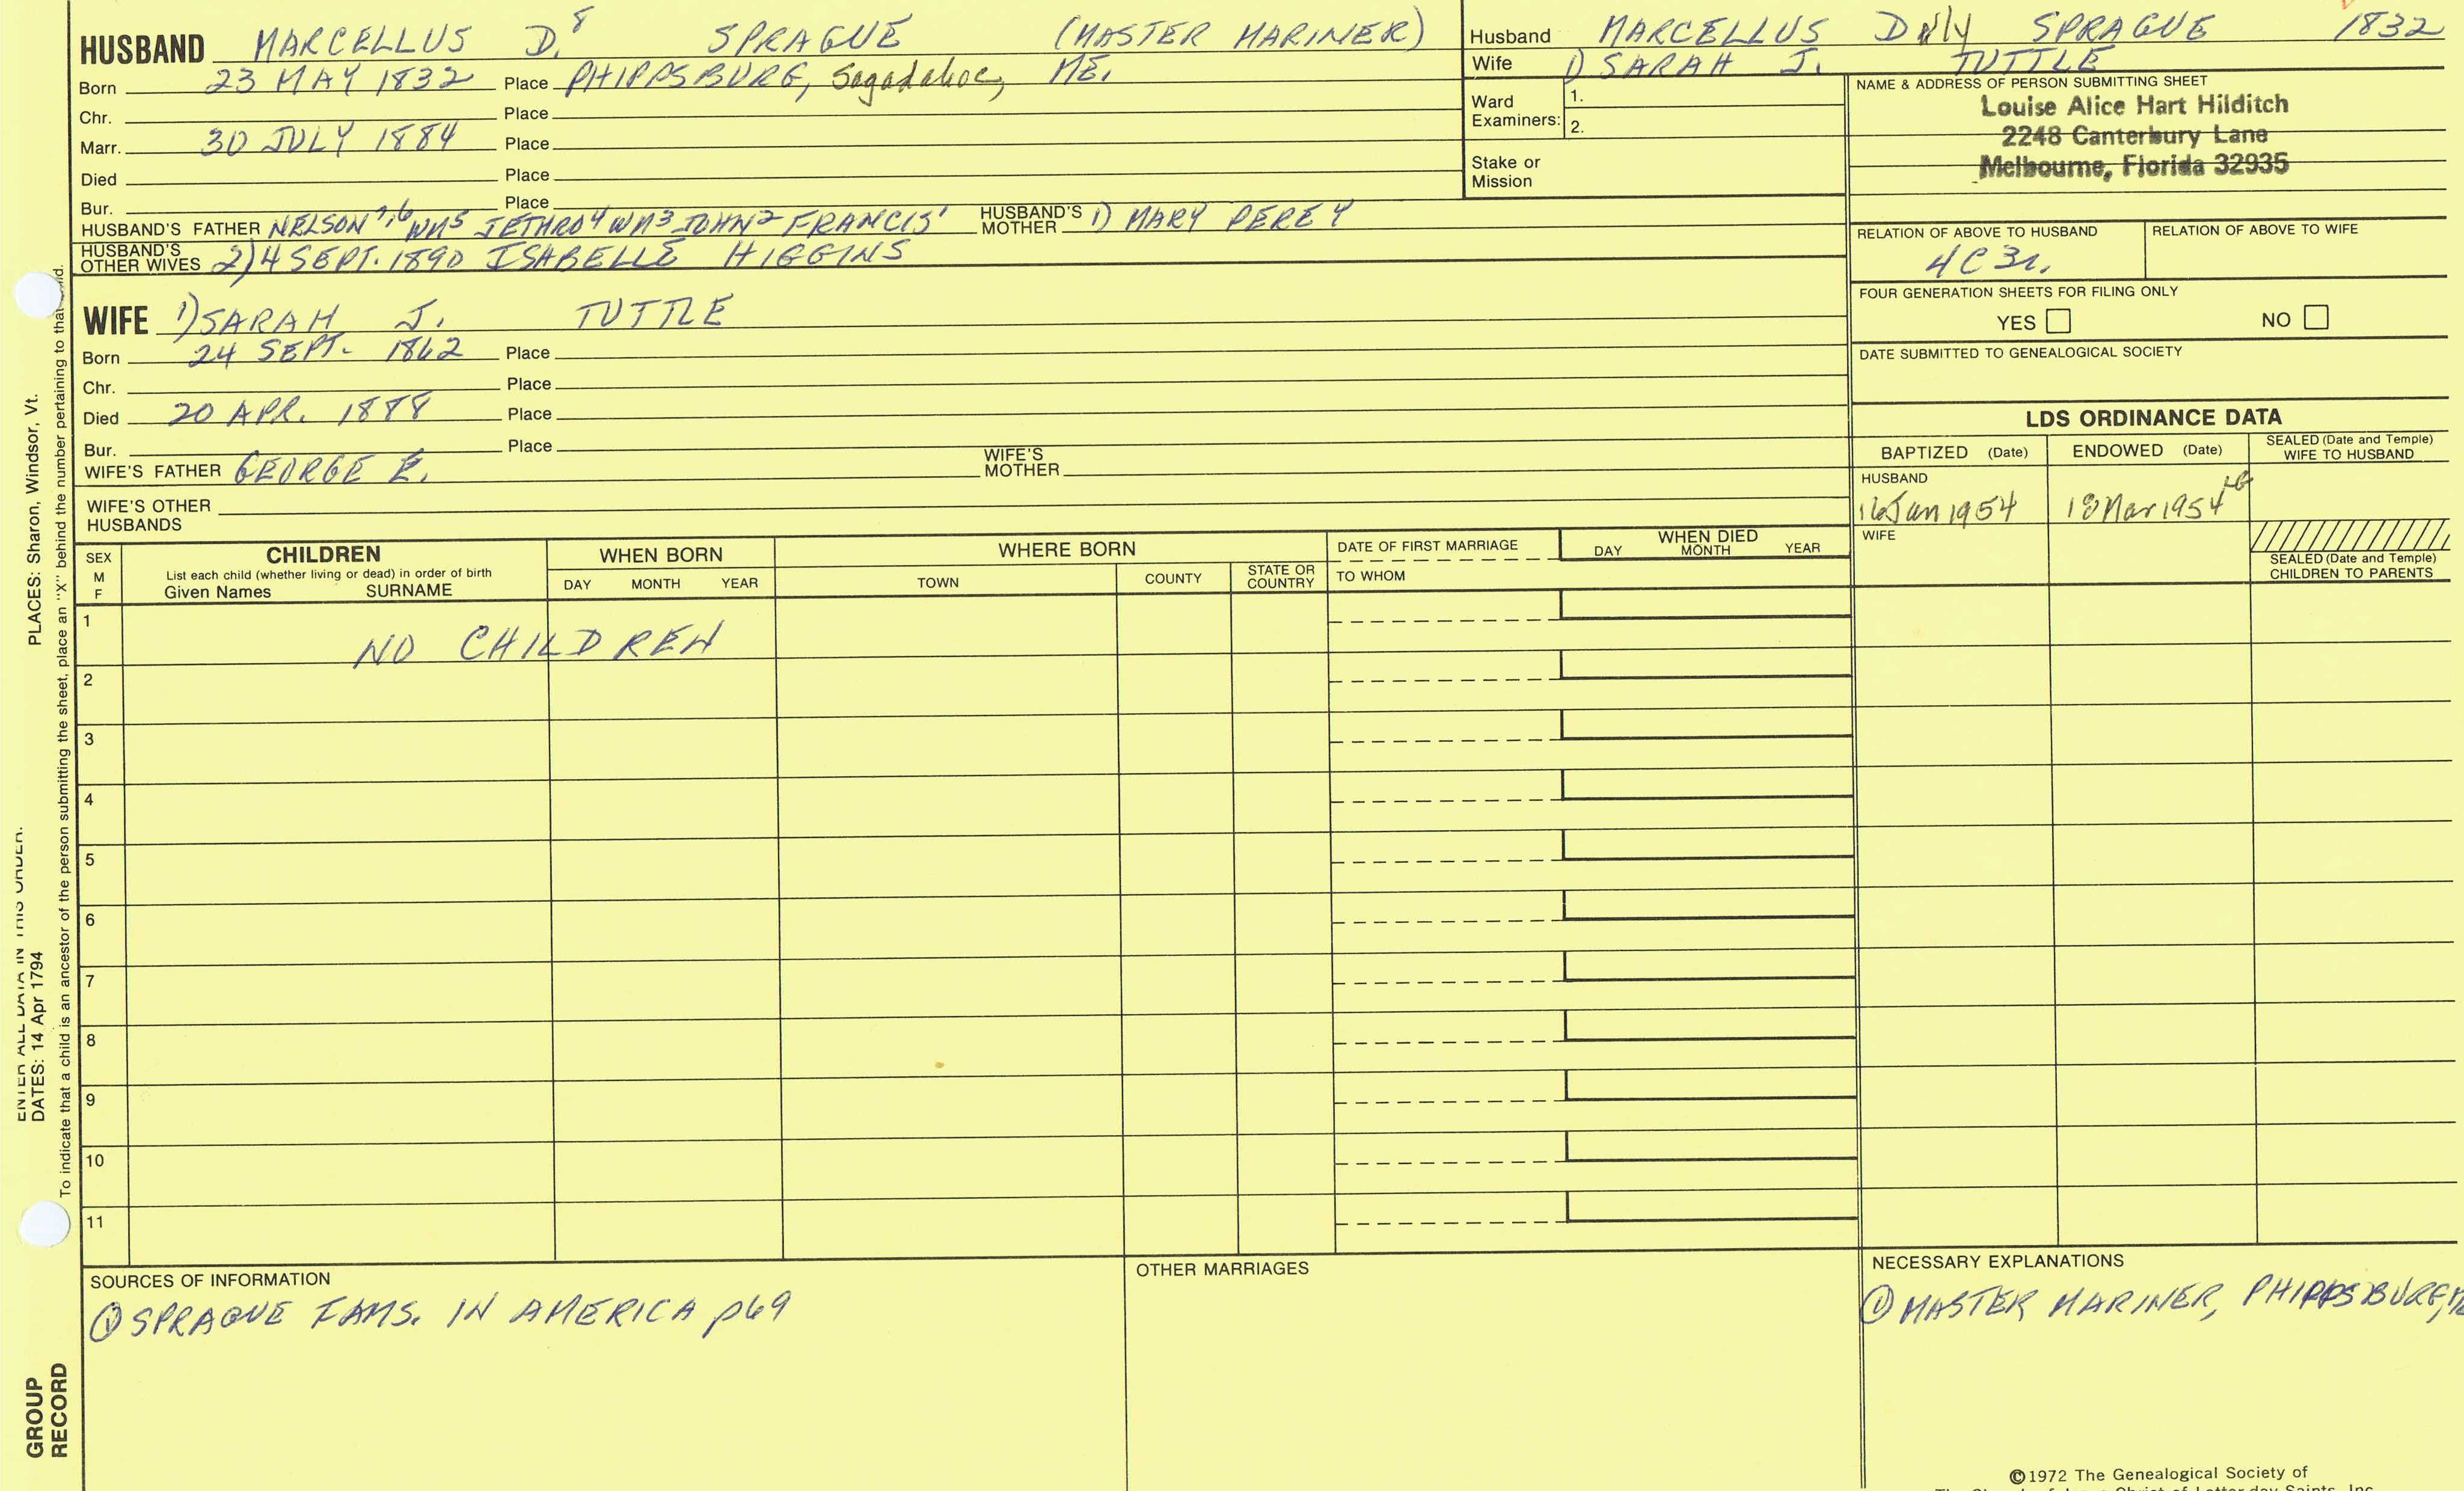 HUSBAND MARCELLUS D.8 SPRAGUE (MASTER MARINER)
Born 23 MAY 1832 Place PHIPPSBURG, Sagadahoc, ME.
Chr. Place
Marr. 30 JULY 1884 Place
Died Place
Bur. Place
HUSBAND'S FATHER NELSON7,6 WM5 JETHRO4 WM3 JOHN2 FRANCIS1 HUSBAND'S MOTHER 1) MARY PEREY
HUSBAND'S OTHER WIVES 2) 4 SEPT. 1890 ISABELLE HIGGINS
WIFE 1) SARAH J. TUTTLE
Born 24 SEPT. 1862 Place
Chr. Place
Died 20 APR. 1888 Place
Bur. Place
WIFE'S FATHER GEORGE E. WIFE'S MOTHER
WIFE'S OTHER HUSBANDS
Husband MARCELLUS SPRAGUE 1832
Wife 1) SARAH J. TUTTLE
Ward Examiners: 1.
2.
Stake or Mission
NAME & ADDRESS OF PERSON SUBMITTING SHEET
Louise Alice Hart Hilditch
2248 Canterbury Lane
Melbourne, Florida 32935
RELATION OF ABOVE TO HUSBAND RELATION OF ABOVE TO WIFE
4C3r.
FOUR GENERATION SHEETS FOR FILING ONLY
YES NO
DATE SUBMITTED TO GENEALOGICAL SOCIETY
LDS ORDINANCE DATA
BAPTIZED (Date) ENDOWED (Date) SEALED (Date and Temple) WIFE TO HUSBAND
HUSBAND
16 Jan 1954 18 Mar 1954
WIFE
SEALED (Date and Temple) CHILDREN TO PARENTS
SEX M F
CHILDREN
List each child (whether living or dead) in order of birth
Given Names SURNAME
WHEN BORN
DAY MONTH YEAR
WHERE BORN
TOWN COUNTY STATE OR COUNTRY
DATE OF FIRST MARRIAGE
TO WHOM
WHEN DIED
DAY MONTH YEAR
1 NO CHILDREN
2
3
4
5
6
7
8
9
10
11
SOURCES OF INFORMATION
① SPRAGUE FAMS. IN AMERICA p69
OTHER MARRIAGES
NECESSARY EXPLANATIONS
① MASTER MARINER, PHIPPSBURG,
©1972 The Genealogical Society of
The Church of Jesus Christ of Latter-day Saints, Inc.
ENTER ALL DATA IN THIS ORDER:
DATES: 14 Apr 1794 PLACES: Sharon, Windsor, Vt.
To indicate that a child is an ancestor of the person submitting the sheet, place an "X" behind the number pertaining to that child.
GROUP RECORD